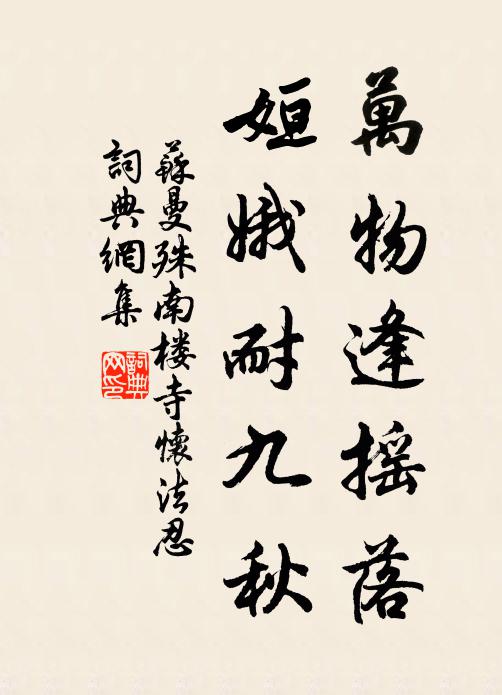 萬物逢摇落
姮娥耐九秋
蘇曼殊南楼寺懷法忍
詞典網集
詞典網印